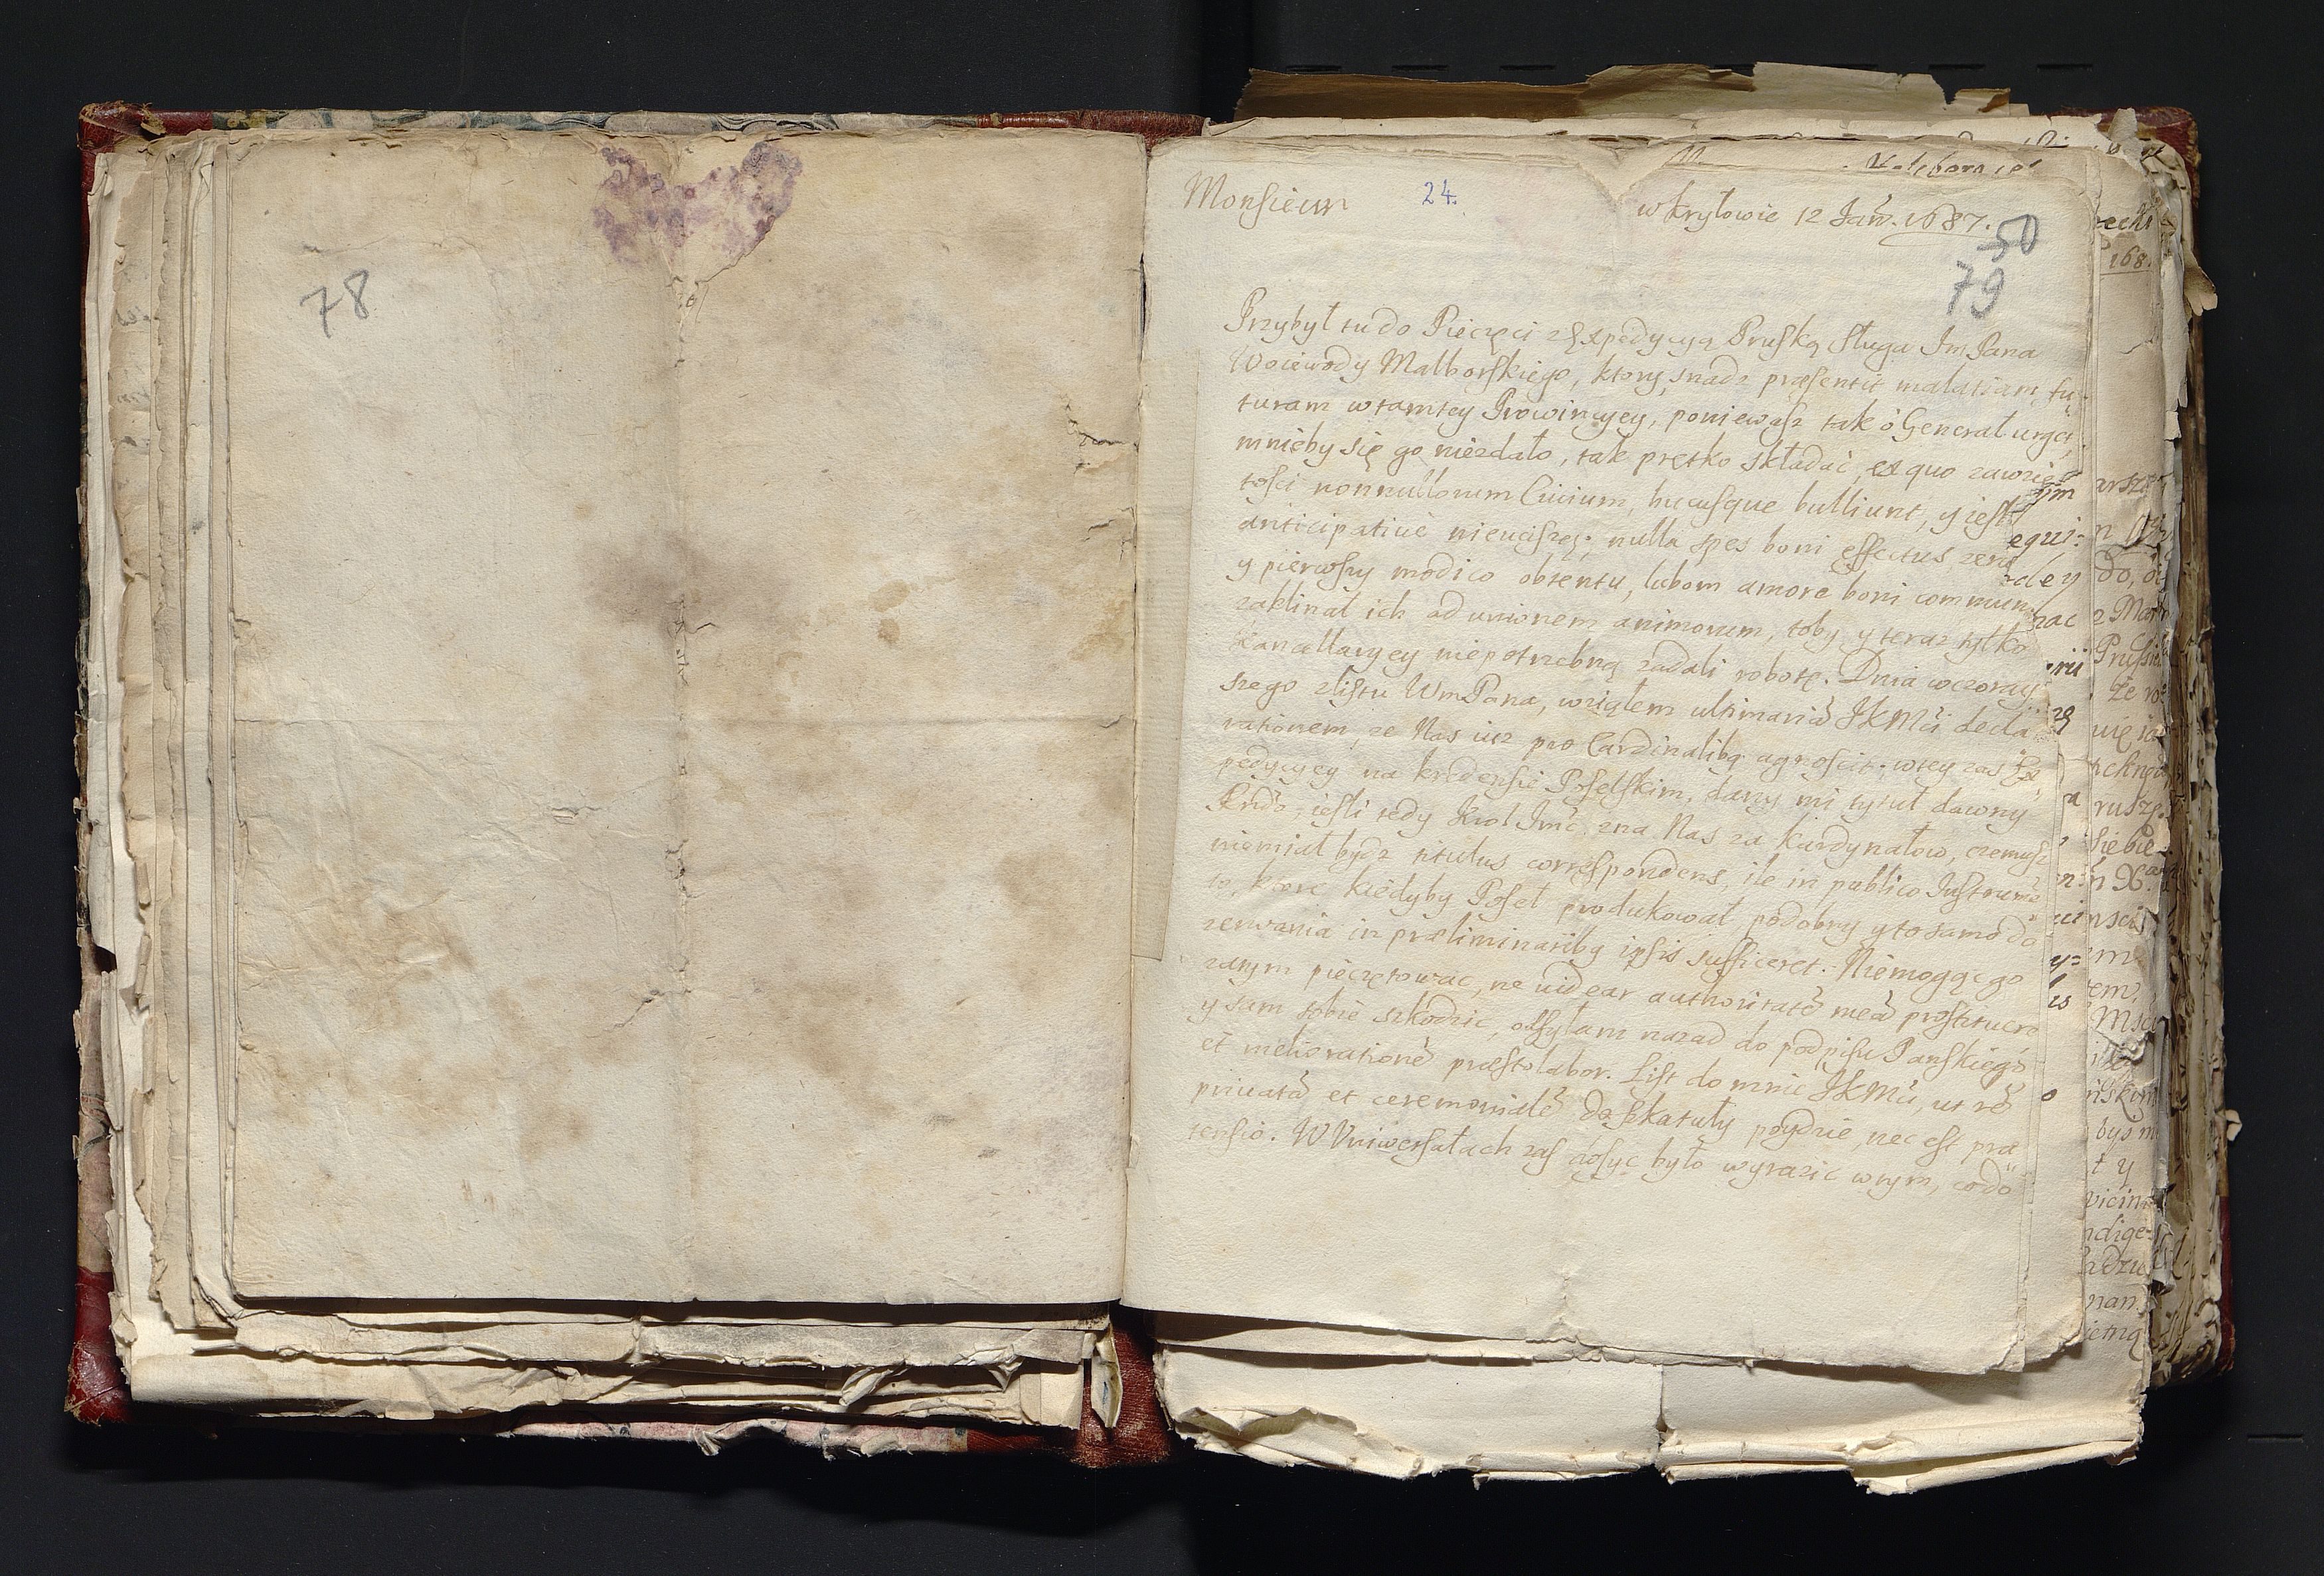 78
Monsieur
24.
w Kryłowie 12 Jan. 1687.
50
79
Przybył tu do Pieczęci z Expedycyą Pruską Sługa Jm Pana
Woiewody Malborskiego, ktory snadz præsentit malitiam fu-
turam w tamtey Prowincyey, poniewasz tak o Generał urget,
mnieby się go niezdało, tak prętko składać, ex quo zawzię-
tości nonnullorum Civium, hucusque bulliunt, y iesli
anticipative nieuciszą; nulla spes boni effectus, zerw
y pierwszy modico obtentu, lubom amore boni commun
zaklinał ich ad unionem animorum, toby y teraz tylko
Kancellaryey niepotrzebną zadali robotę. Dnia wczoray
szego z listu WmPana, wziąłem ultimariã JKMći decla
rationem, ze Nas iuz pro Cardinalibq agnoscit; w tey zas Ex
pedycyey na kredensie Poselskim, dany mi tytuł dawny
Rndo, iesli tedy Krol Jmć, zna Nas za Kardynałow, czemusz
niemiał bydz titulus correspondens, ile in publico Instrumē
to, ktore kiedyby Poseł produkował podobny y to samo do
zerwania in præliminaribq ipsis sufficeret. Niemogąc go
zatym pieczętować, ne videar authoritatē meā prostituere
y sam sobie szkodzic, odsyłam nazad do podpisu Panskiego
et meliorationē præstolabor. List do mnie JKMći, ut rē
privatā et ceremonialē do szkatuły poydzie, nec est præ
tensio. W Vniwersałach zas dosyc było wyrazic w tym, co do